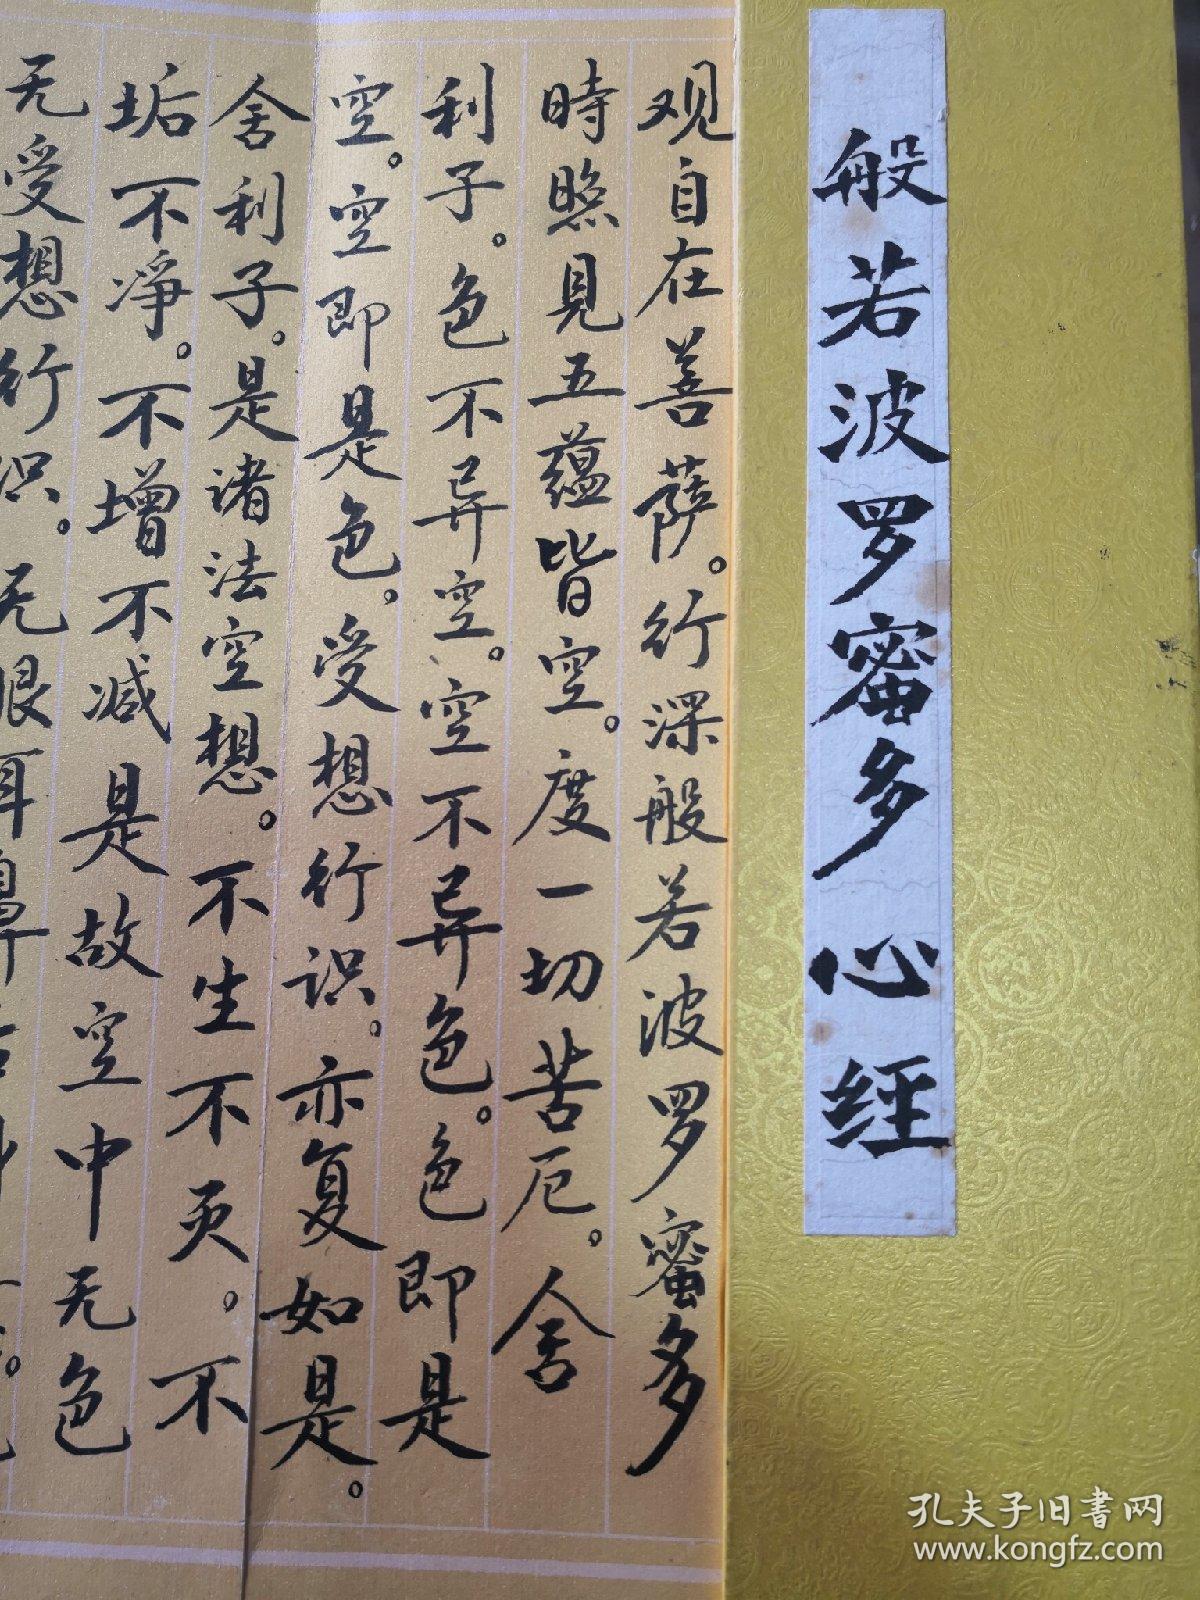 般若波罗蜜多心经
观自在善萨。行深般若波罗蜜多
時照見五蕴皆空。度一切苦厄。舍
利子。色不异空。空不异色。色即是
空。空即是色。受想行识。亦复如是。
舍利子。是诸法空想。不生不灭。不
垢不净。不增不减是故空中无色
无受想行识。无眼耳鼻舌
孔夫子旧书网
www.kongfz.com